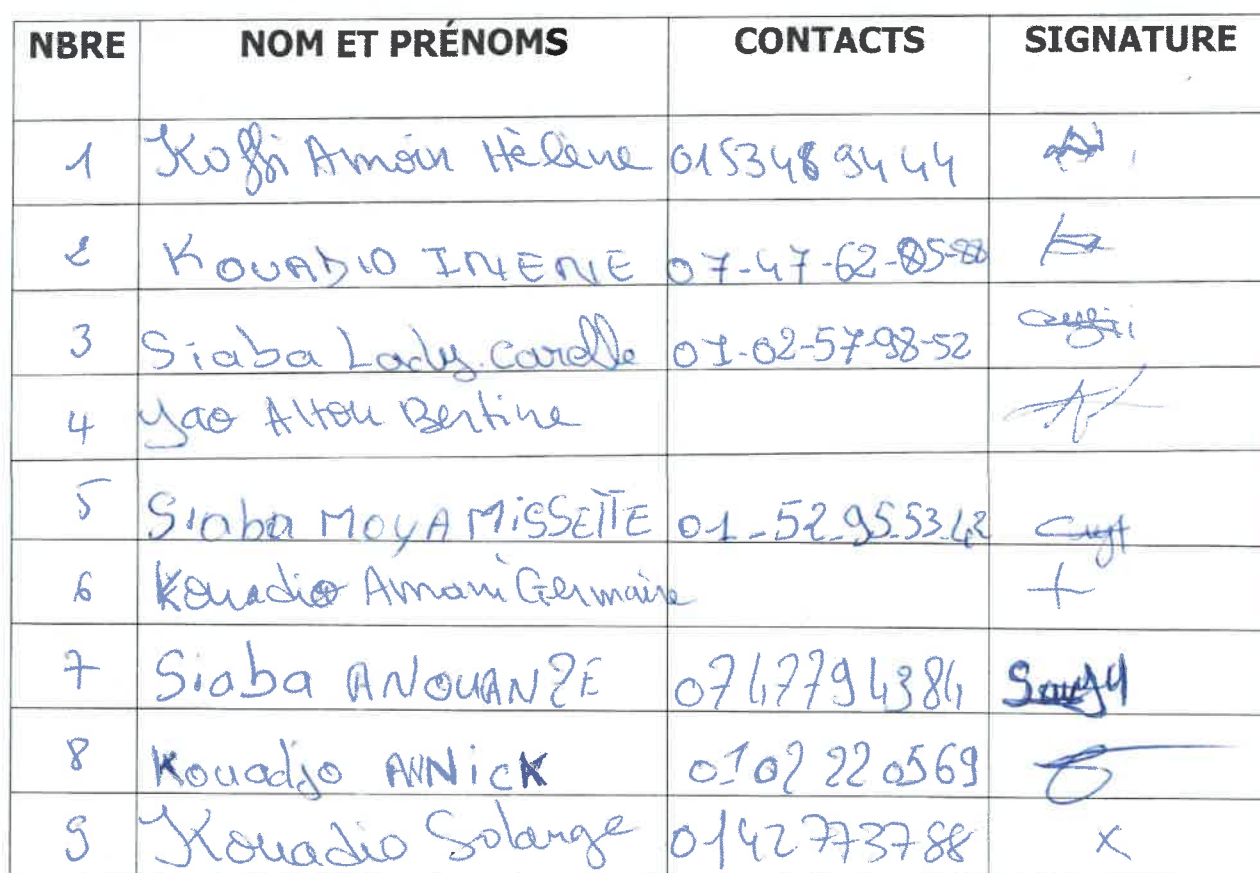 NBRE NOM ET PRÉNOMS CONTACTS SIGNATURE
1 Koffi Amoin Hélène 0153489444
2 KOUADIO INENE 07-47-62-05-88
3 Siaba Lady Carelle 01-02-57-98-52
4 Yao Ahou Bertine
5 Siaba MOYA MiSSETTE 01-52-95-53-42
6 Kouadio Amani Germaine +
7 Siaba ANOUANZE 0747794384
8 Kouadjo ANNicK 0102220569
9 Kouadio Solange 0142773788 x